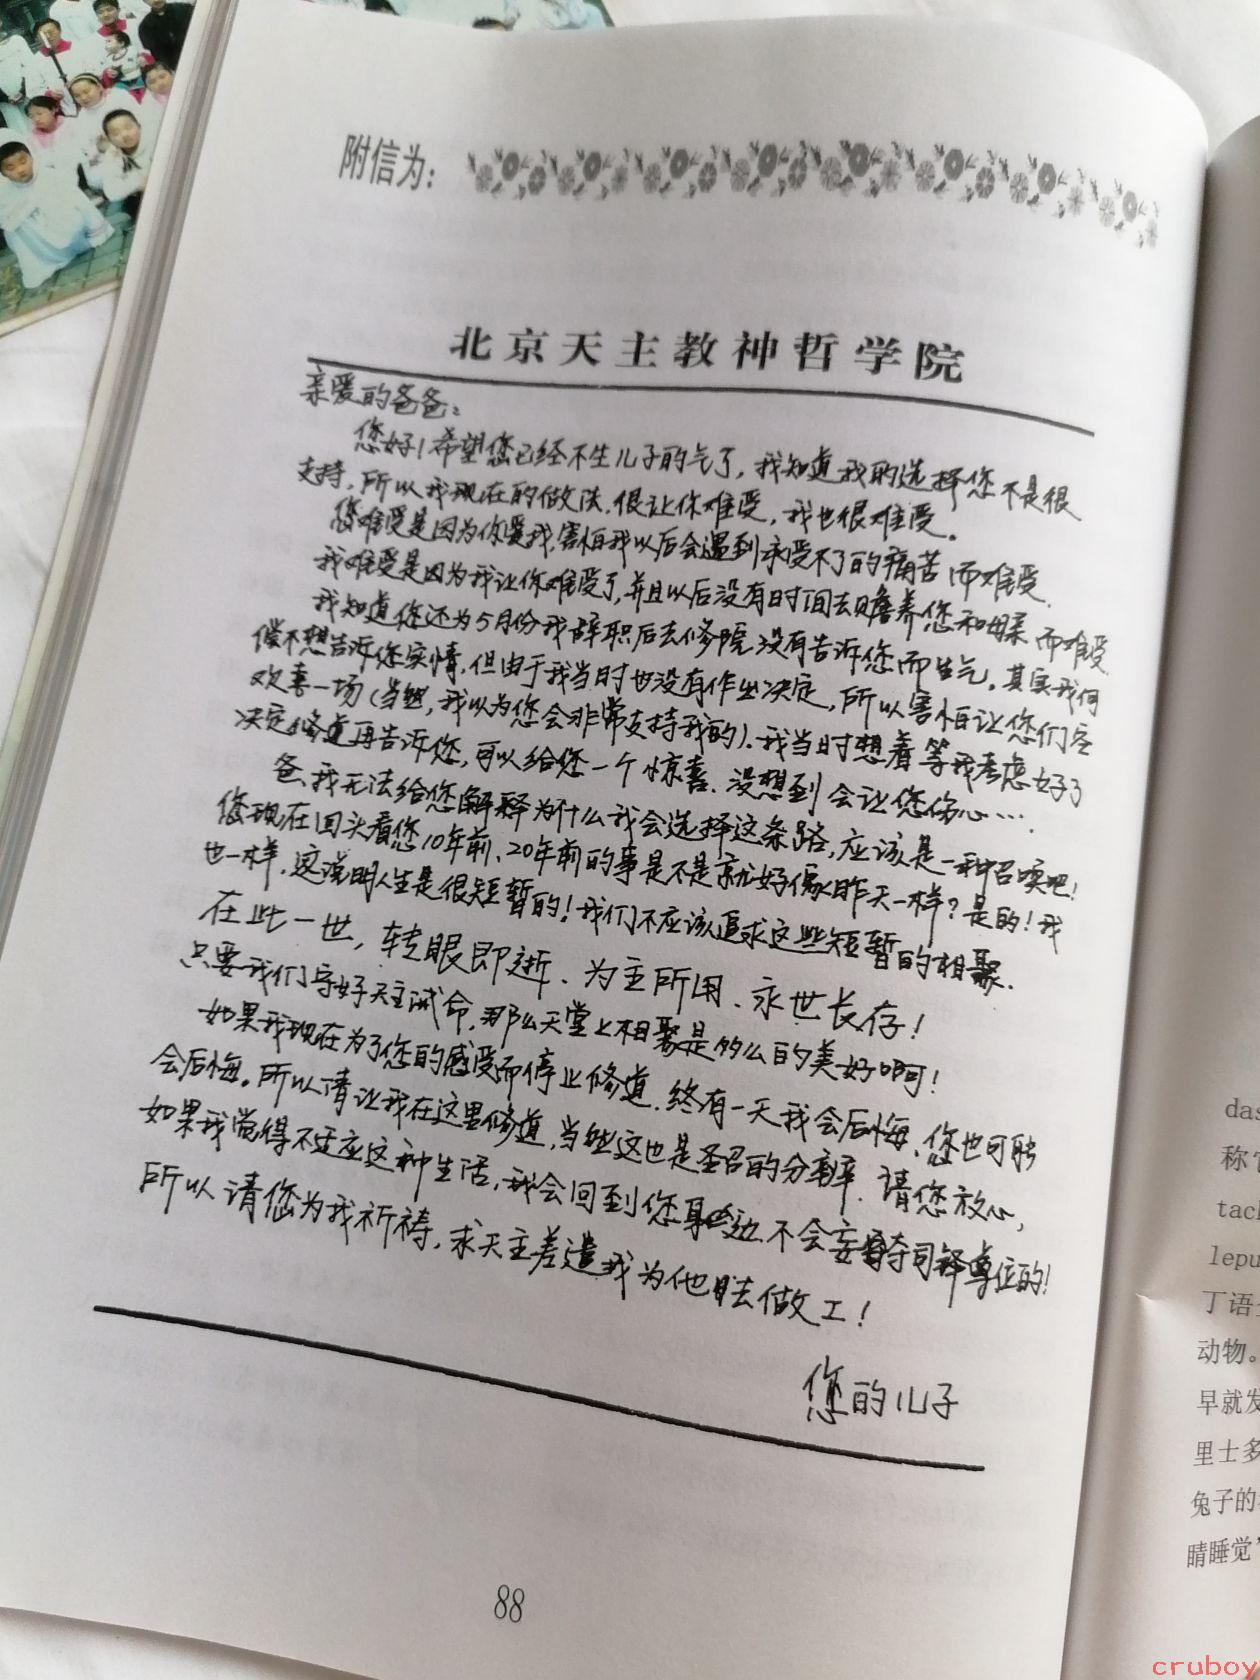 附信为：
北京天主教神哲学院
亲爱的爸爸：
您好！希望您已经不生儿子的气了，我知道我的选择您不是很
支持，所以我现在的做法，很让你难受，我也很难受。
您难受是因为你爱我，害怕我以后会遇到承受不了的痛苦而难受，
我难受是因为我让你难受了，并且以后没有时间去赡养您和母亲而难受。
我知道您还为5月份我辞职后去修院没有告诉您而生气。其实我何
偿不想告诉您实情，但由于我当时也没有作出决定，所以害怕让您们空
欢喜一场（当然，我以为您会非常支持我的）。我当时想着等我考虑好了
决定修道再告诉您，可以给您一个惊喜，没想到会让您伤心…
爸，我无法给您解释为什么我会选择这条路，应该是一种召唤吧！
您现在回头看您10年前、20年前的事是不是就好像昨天一样？是的！我
也一样，这说明人生是很短暂的！我们不应该追求这些短暂的相聚．
在此一世，转眼即逝、为主所用、永世长存！
只要我们守好天主诫命，那么天堂上相聚是多么的美好啊！
如果我现在为了您的感受而停止修道，终有一天我会后悔、您也可能
会后悔。所以请让我在这里修道，当然这也是圣召的分辨，请您放心，
如果我觉得不适应这种生活，我会回到您身边不会妄夺司铎尊位的！
所以请您为我祈祷，求天主差遣我为他去做工！
您的儿子
88
das
称
tac
lepu
丁语
动物。
早就发
里士多
兔子的
睛睡觉
cruboy